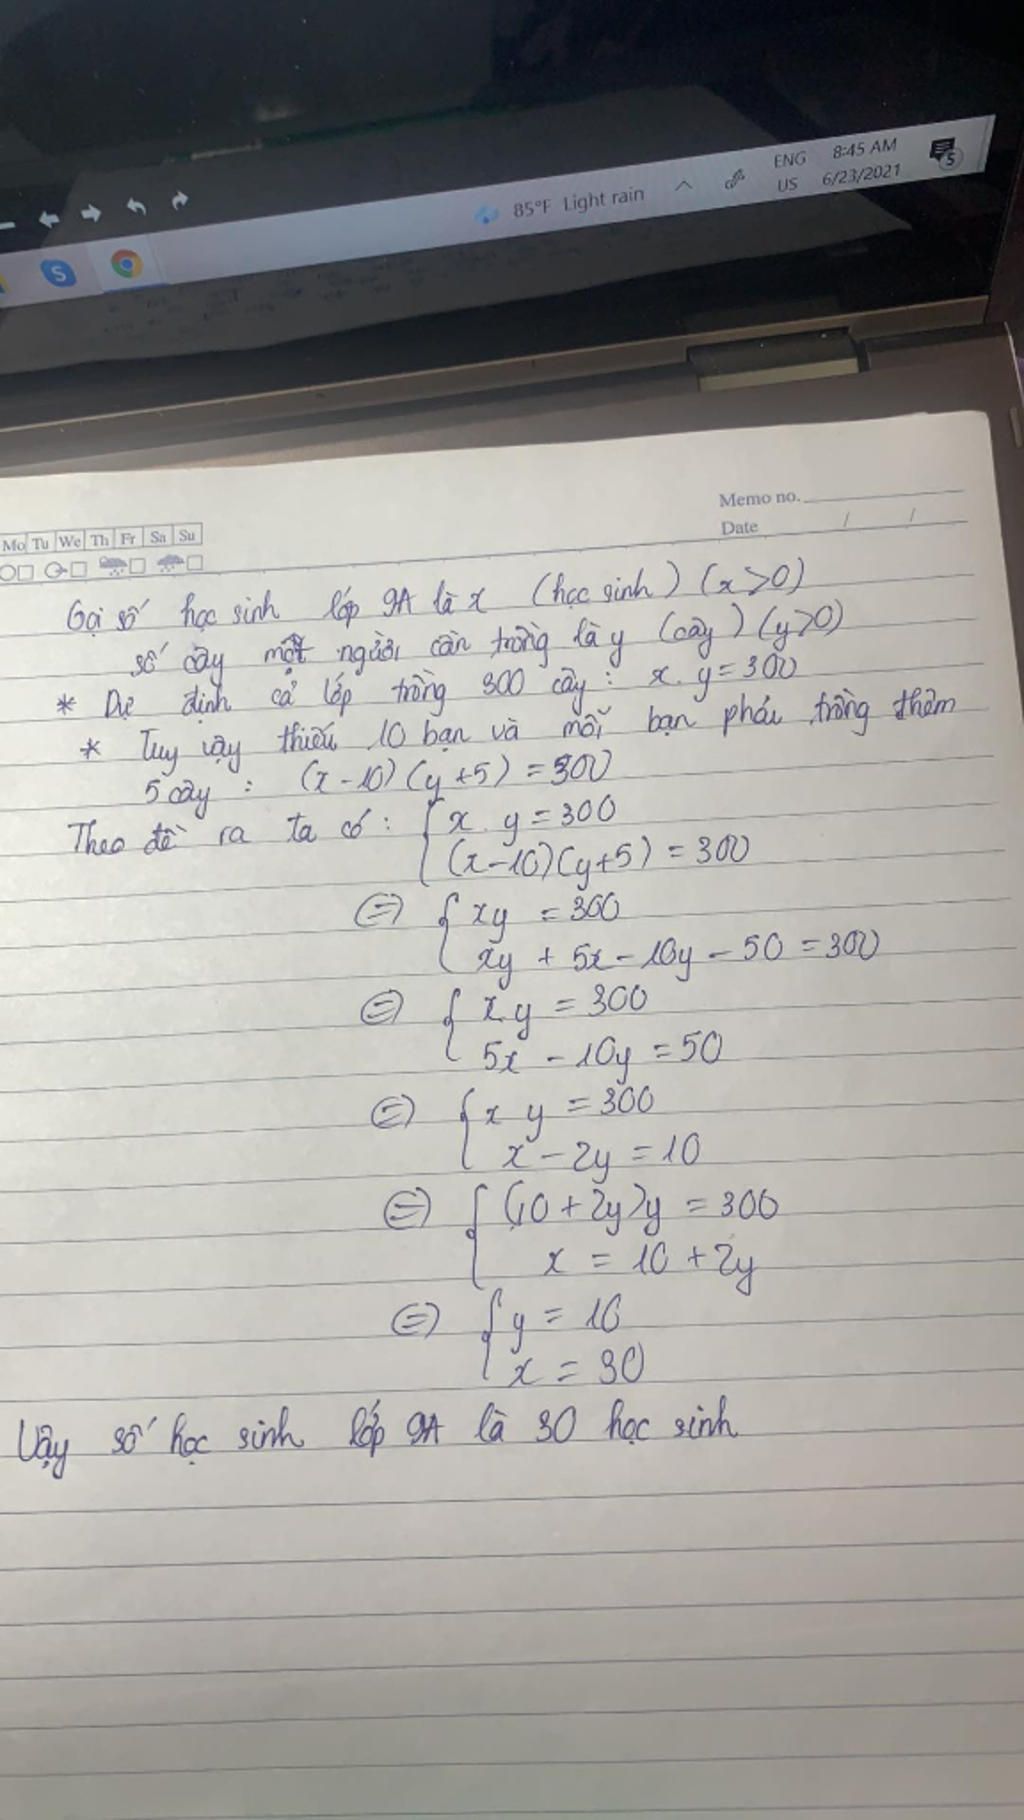 ENG
8:45 AM
85°F Light rain
US
6/23/2021
5
S
Memo no.
Date / /
Mo Tu We Th Fr Sa Su
Gọi số học sinh lớp 9A là x (học sinh) (x>0)
số cây một người cần trồng là y (cây) (y>0)
* Dự định cả lớp trồng 300 cây : x. y = 300
* Tuy vậy thiếu 10 bạn và mỗi bạn phải trồng thêm
5 cây : (x-10)(y+5) = 300
Theo đề ra ta có : { x. y = 300
(x-10)(y+5) = 300
(=) { xy = 300
xy + 5x - 10y - 50 = 300
(=) { x.y = 300
5x - 10y = 50
(=) { x y = 300
x - 2y = 10
(=) { (10+2y)y = 300
x = 10 + 2y
(=) { y = 10
x = 30
Vậy số học sinh lớp 9A là 30 học sinh